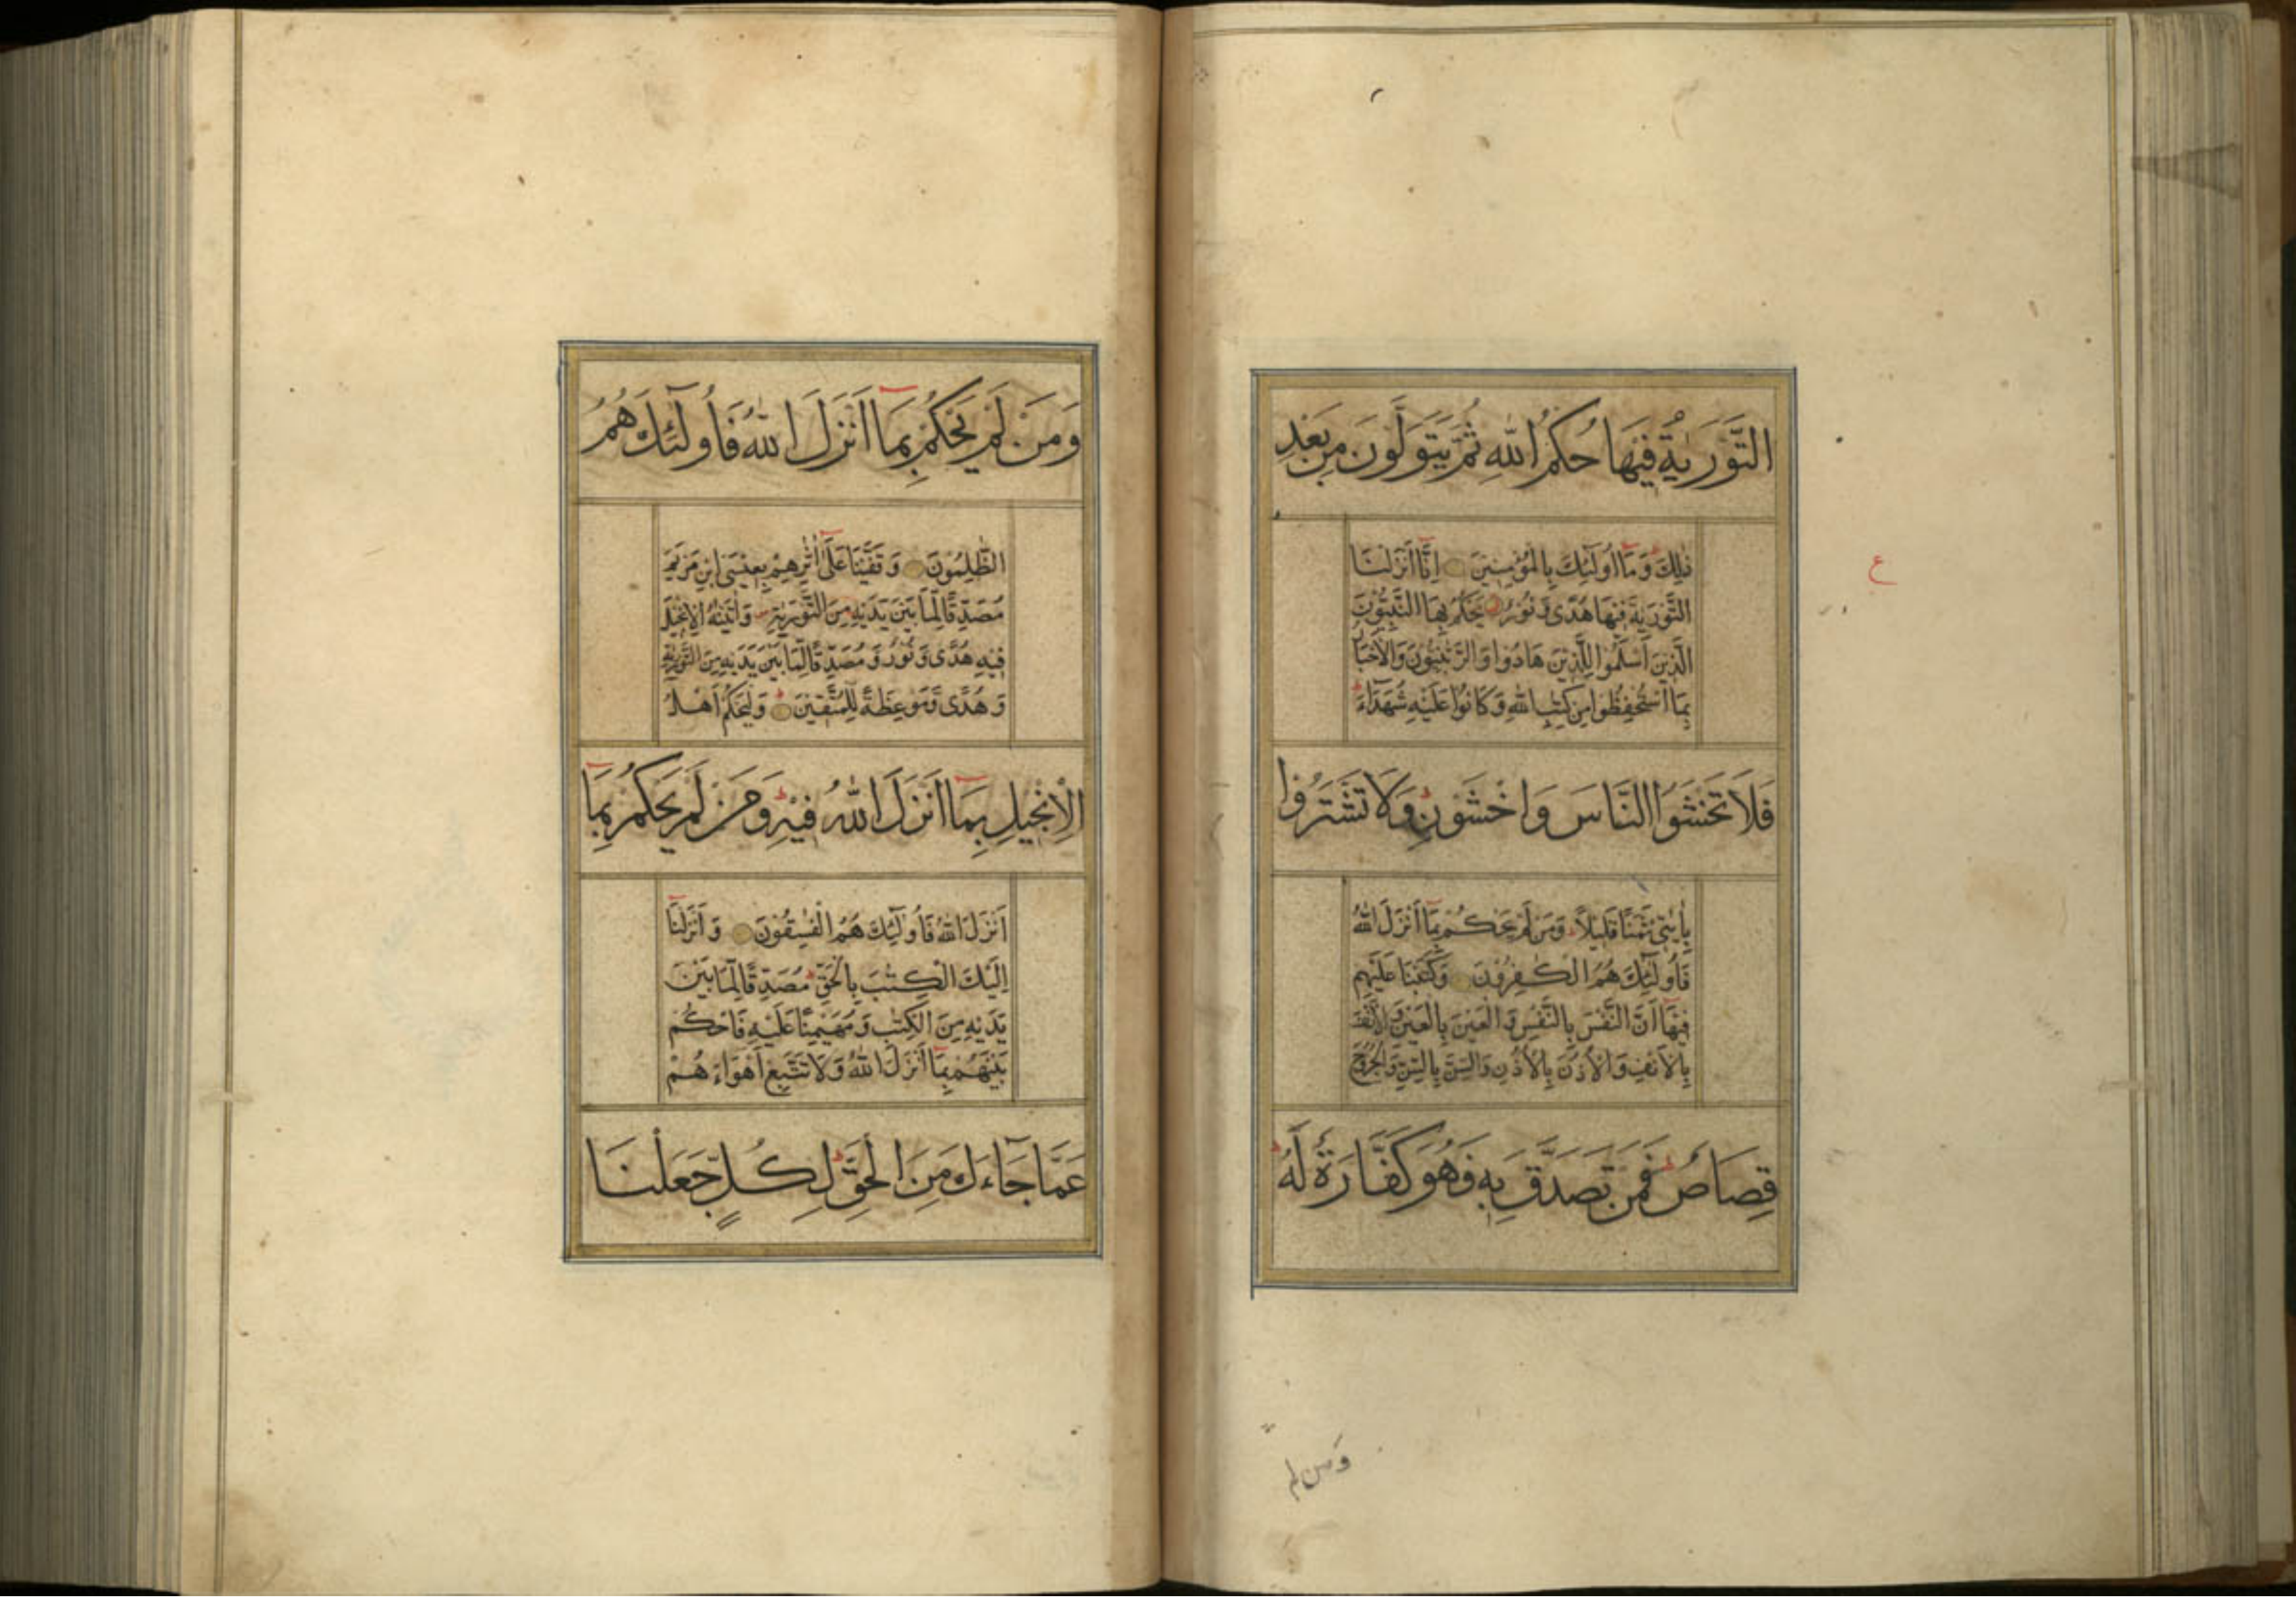 التَّوْرٰيةُ فِيهَا حُكْمُ اللّٰهِ ثُمَّ يَتَوَلَّوْنَ مِنْ بَعْدِ
ذٰلِكَ وَمَآ اُولٰٓئِكَ بِالْمُؤْمِنِينَ اِنَّآ اَنْزَلْنَا
التَّوْرٰيةَ فِيهَا هُدًى وَنُورٌ يَحْكُمُ بِهَا النَّبِيُّونَ
الَّذِينَ اَسْلَمُوا لِلَّذِينَ هَادُوا وَالرَّبّٰنِيُّونَ وَالْاَحْبَارُ
بِمَا اسْتُحْفِظُوا مِنْ كِتٰبِ اللّٰهِ وَكَانُوا عَلَيْهِ شُهَدَآءَ
فَلَا تَخْشَوُا النَّاسَ وَاخْشَوْنِ وَلَا تَشْتَرُوا
بِاٰيٰتِي ثَمَنًا قَلِيلًا وَمَنْ لَمْ يَحْكُمْ بِمَآ اَنْزَلَ اللّٰهُ
فَاُولٰٓئِكَ هُمُ الْكٰفِرُونَ وَكَتَبْنَا عَلَيْهِمْ
فِيهَآ اَنَّ النَّفْسَ بِالنَّفْسِ وَالْعَيْنَ بِالْعَيْنِ وَالْاَنْفَ
بِالْاَنْفِ وَالْاُذُنَ بِالْاُذُنِ وَالسِّنَّ بِالسِّنِّ وَالْجُرُوحَ
قِصَاصٌ فَمَنْ تَصَدَّقَ بِهِ فَهُوَ كَفَّارَةٌ لَهُ
ع
وَمن لم
وَمَنْ لَمْ يَحْكُمْ بِمَآ اَنْزَلَ اللّٰهُ فَاُولٰٓئِكَ هُمُ
الظّٰلِمُونَ وَقَفَّيْنَا عَلٰٓى اٰثَرِهِمْ بِعِيسَى ابْنِ مَرْيَمَ
مُصَدِّقًا لِمَا بَيْنَ يَدَيْهِ مِنَ التَّوْرٰيةِ وَاٰتَيْنٰهُ الْاِنْجِيلَ
فِيهِ هُدًى وَنُورٌ وَمُصَدِّقًا لِمَا بَيْنَ يَدَيْهِ مِنَ التَّوْرٰيةِ
وَهُدًى وَمَوْعِظَةً لِلْمُتَّقِينَ وَلْيَحْكُمْ اَهْلُ
الْاِنْجِيلِ بِمَآ اَنْزَلَ اللّٰهُ فِيهِ وَمَنْ لَمْ يَحْكُمْ بِمَآ
اَنْزَلَ اللّٰهُ فَاُولٰٓئِكَ هُمُ الْفٰسِقُونَ وَاَنْزَلْنَآ
اِلَيْكَ الْكِتٰبَ بِالْحَقِّ مُصَدِّقًا لِمَا بَيْنَ
يَدَيْهِ مِنَ الْكِتٰبِ وَمُهَيْمِنًا عَلَيْهِ فَاحْكُمْ
بَيْنَهُمْ بِمَآ اَنْزَلَ اللّٰهُ وَلَا تَتَّبِعْ اَهْوَاءَهُمْ
عَمَّا جَآءَكَ مِنَ الْحَقِّ لِكُلٍّ جَعَلْنَا